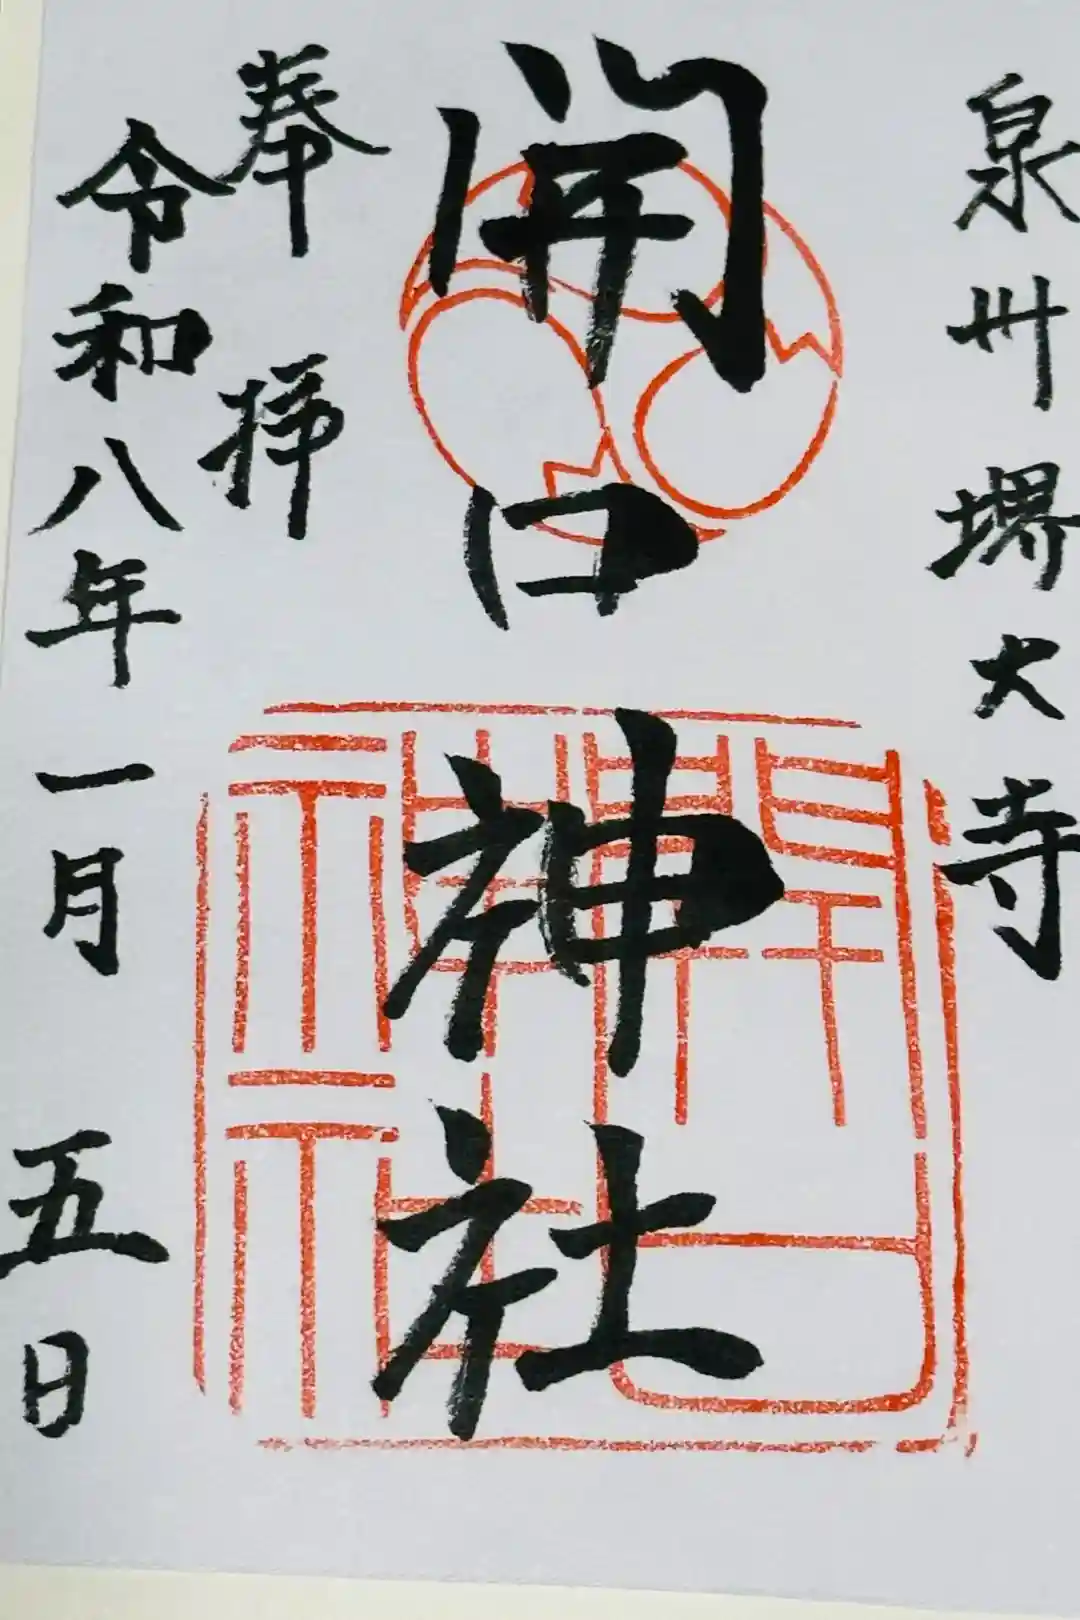 泉卅堺大寺
開口神社
奉拝
令和八年一月五日
開口
神社